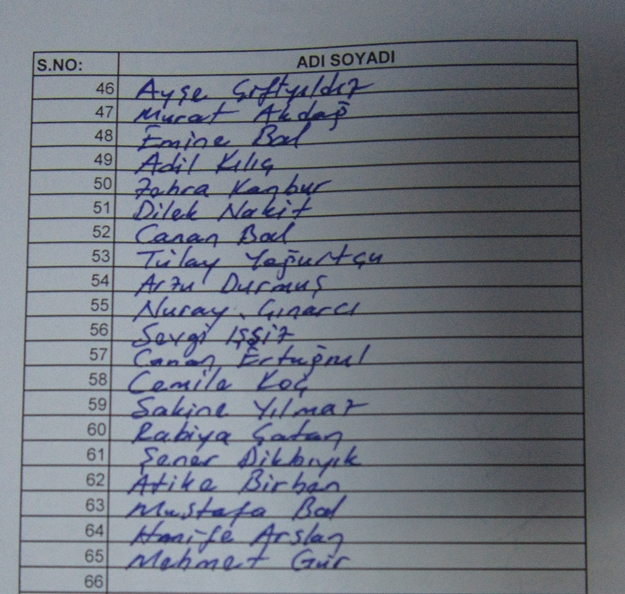 S.NO: ADI SOYADI
46 Ayşe Çiftyıldız
47 Murat Akdağ
48 Emine Bal
49 Adil Kılıç
50 Zahra Kanbur
51 Dilek Nakit
52 Canan Bal
53 Tülay Yoğurtçu
54 Arzu Durmuş
55 Nuray Çınarcı
56 Sevgi Işşiz
57 Canan Ertuğrul
58 Cemile Koç
59 Sakine Yılmaz
60 Rabiya Çatan
61 Şener Dikbıyık
62 Atike Birhan
63 Mustafa Bal
64 Hanife Arslan
65 Mehmet Gür
66